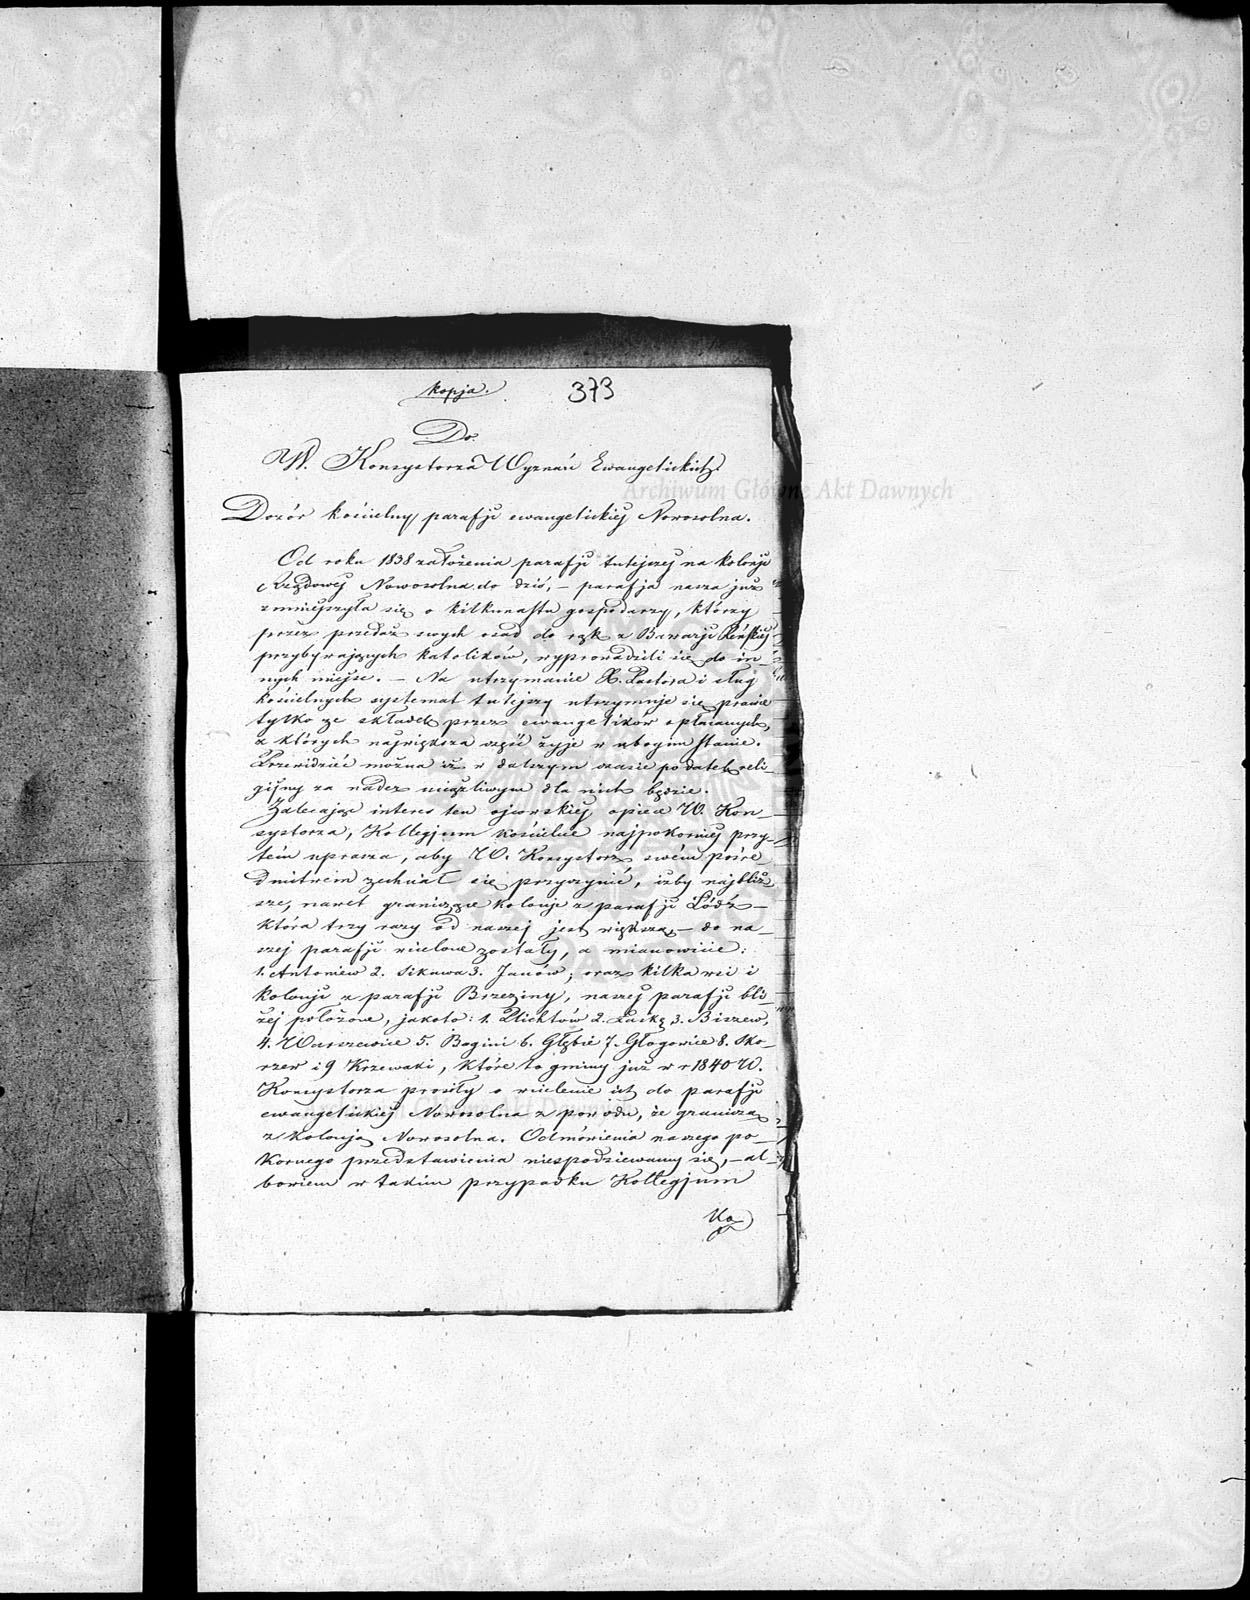 kopja. 373
Do
W. Konsystorza Wyznań Ewangelickich
Archiwum Główne Akt Dawnych
Dozór kościelny parafji ewangelickiej Nowosolna.
Od roku 1838 założenia parafji tutejszej na kolonji
Rządowej Nowosolna do dziś, – parafja nasza już
zmniejszyła się o kilkunastu gospodarzy, którzy
przez przedaż swych osad do rąk z Bawarji Reńskiej
przybywających katolików, wyprowadzili się do in-
nych miejsc. – Na utrzymanie X. Pastora i sług
kościelnych systemat tutejszy utrzymuje się prawie
tylko ze składek przez ewangelików opłacanych,
z których największa część żyje w ubogim stanie.
Przewidzieć można iż w dalszym czasie podatek reli-
gijny za nadez uciążliwym dla nich będzie.
Zalecając interes ten ojcowskiej opiece W. Kon-
systorza, Kollegjum kościelne najpokorniej przy-
tém uprasza, aby W. Konsystorz swém pośre-
dnitwem zechciał się przyczynić, iżby najbliż-
sze, nawet graniczące kolonje z parafji Łódź –
która trzy razy od naszej jest większa, – do na-
szej parafji wcielone zostały, a mianowicie:
1. Antoniew 2. Sikawa 3. Janów; oraz kilka wsi i
kolonji z parafji Brzeziny, naszej parafji bli-
żej położone, jakoto: 1. Plichtów 2. Łaskę 3. Biszew,
4. Warszewice 5. Bogini 6. Głąbie 7. Głogowie 8. Sko-
rzew i 9 Krzewaki, które to gminy już w r 1840 W.
Konsystorza prosiły o wcielenie ich do parafji
ewangelickiej Nowosolna z powodu, że graniczą
z kolonją Nowosolna. Odmówienia naszego po-
kornego przedstawienia niespodziewamy się, – al-
bowiem w takim przypadku Kollegjum